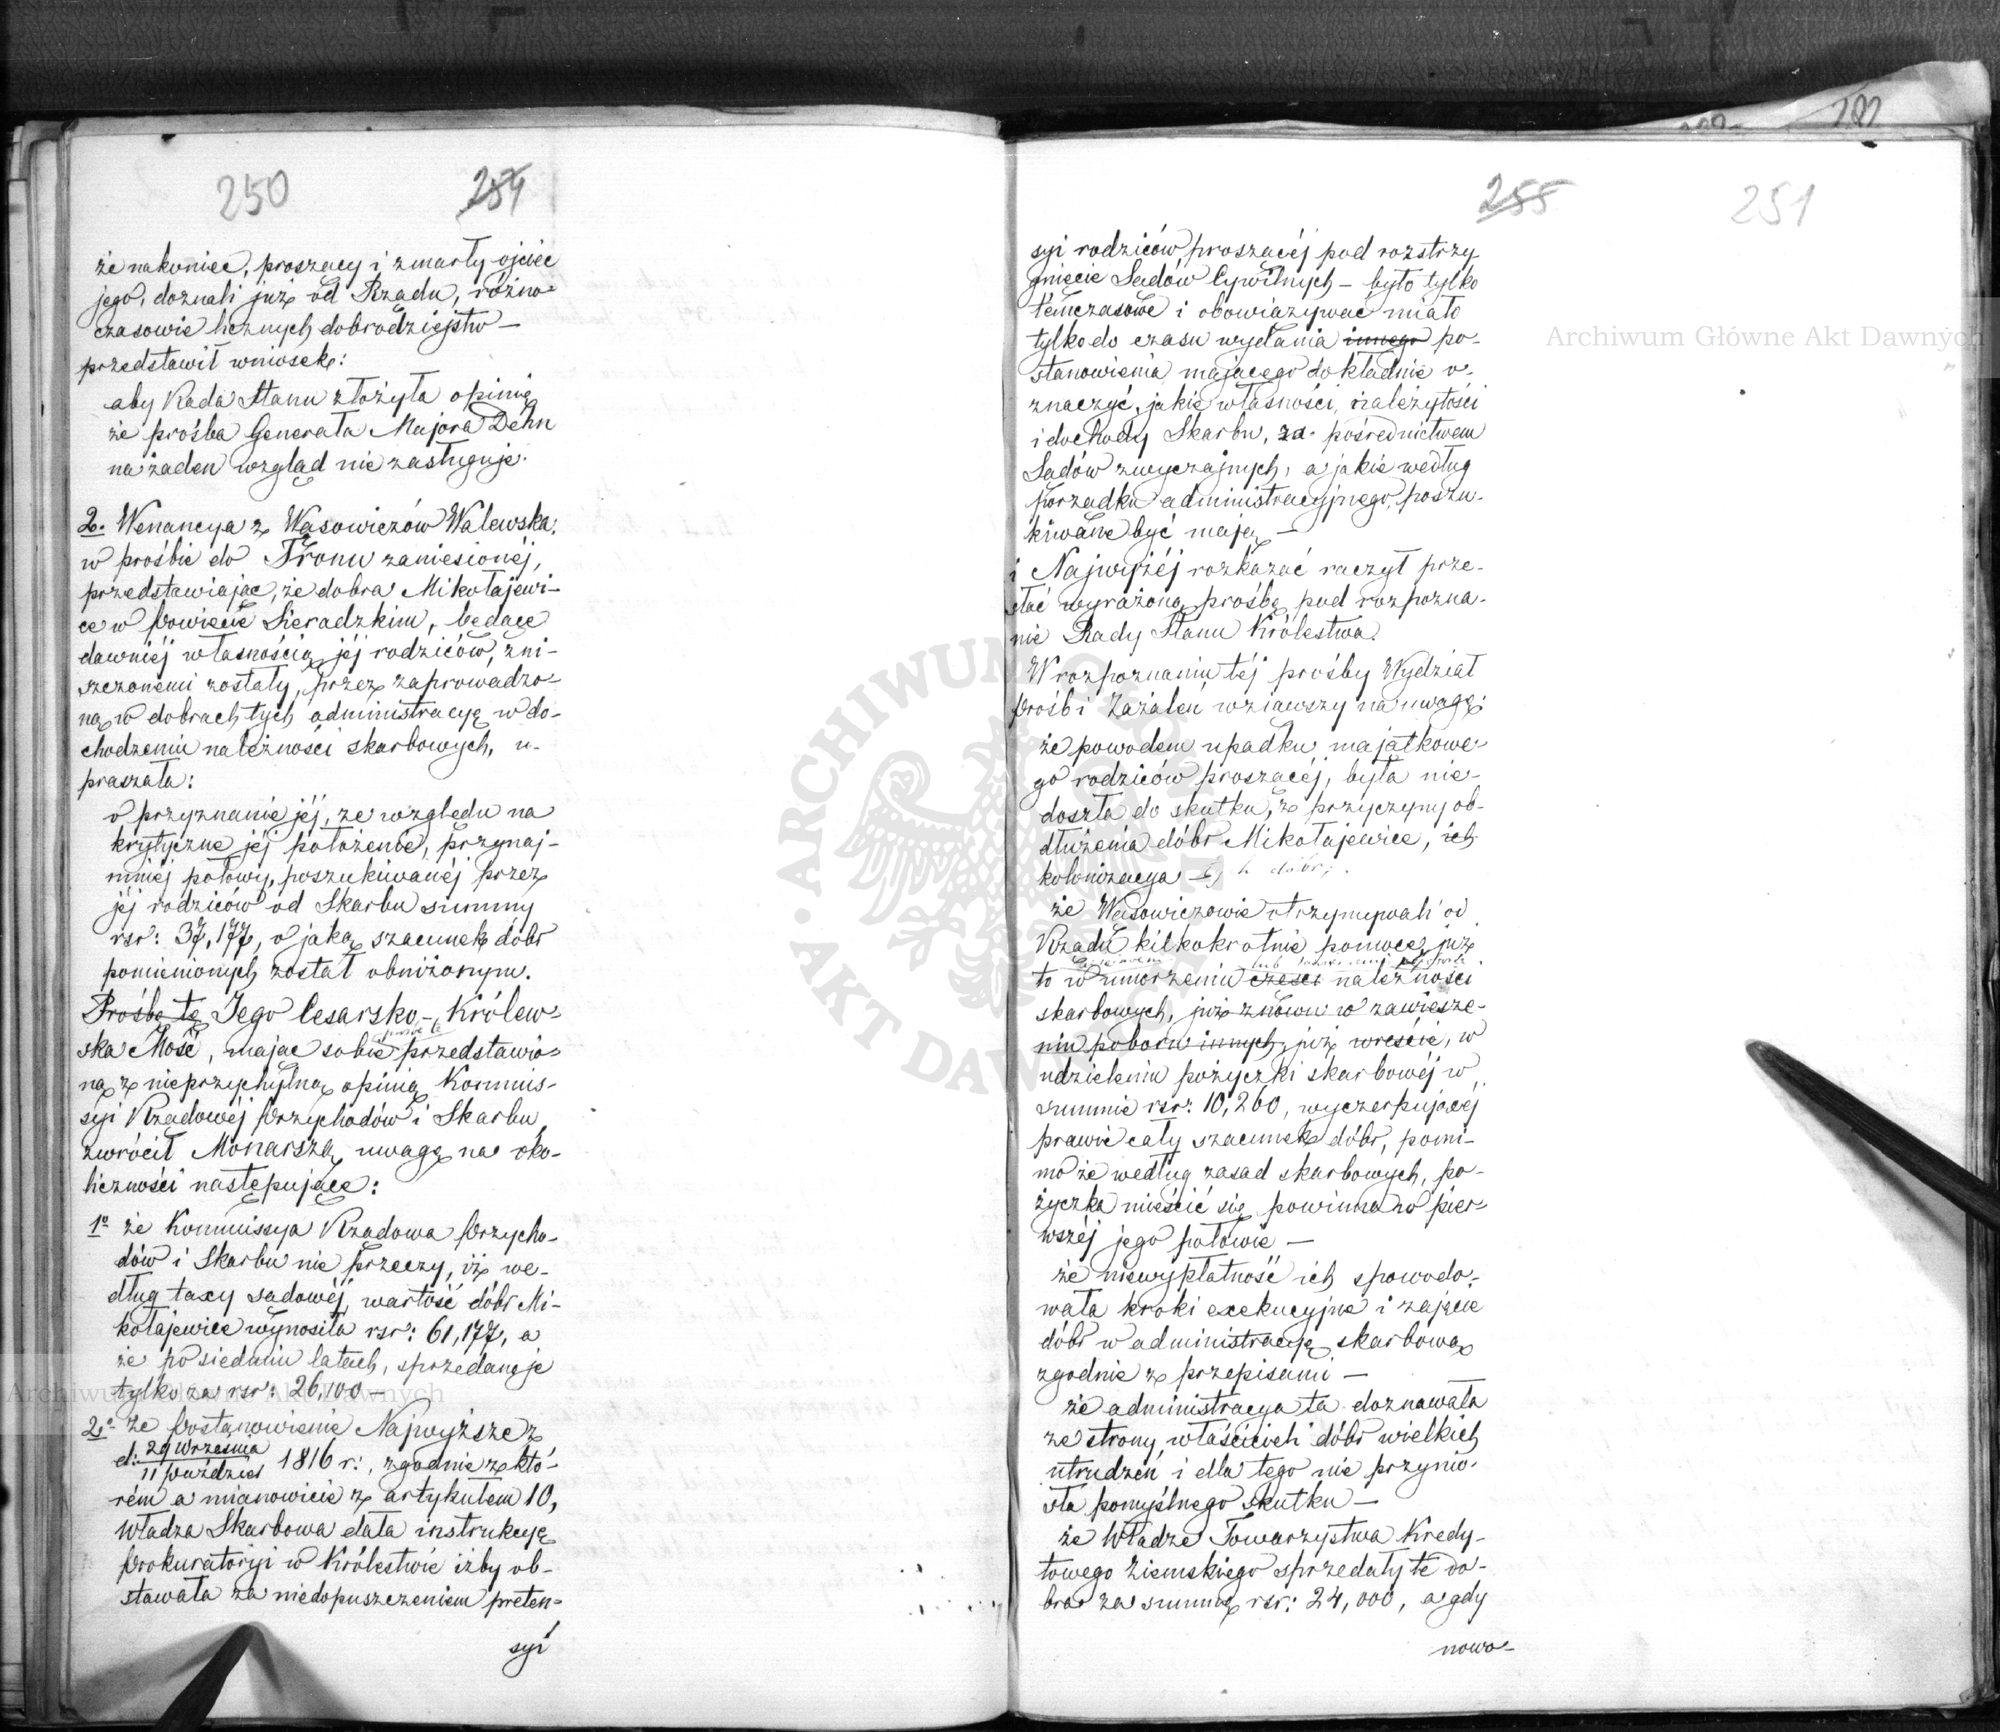 250 254
że nakoniec, proszący i zmarły ojciec
jego, doznali już od Rządu, różno-
czasowie licznych dobrodziejstw —
przedstawił wniosek:
aby Rada Stanu złożyła opinię
że prośba Generała Majora Dehn
na żaden wzgląd nie zasługuje.
2. Wenancya z Wąsowiczów Walewska,
w prośbie do Tronu zaniesionéj,
przedstawiając, że dobra Mikołajewi-
ce w Powiecie Sieradzkim, będące
dawniéj własnością jéj rodziców, zni-
szczonemi zostały, przez zaprowadzo-
ną w dobrach tych administracyę w do-
chodzeniu należności skarbowych, u-
praszała:
o przyznanie jéj, ze względu na
krytyczne jéj położenie, przynaj-
mniéj połowy, poszukiwanéj przez
jéj rodziców od Skarbu summy
rsr: 37,177, o jaką szacunek dóbr
pomienionych został obniżonym.
Prośbę tę Jego Cesarsko-Królew-
ska Mość, mając sobie prośbę tę przedstawio-
ną z nieprzychylną opinią Kommis-
syi Rządowéj Przychodów i Skarbu,
zwrócił Monarszą uwagę na oko-
liczności następujące:
1o że Kommissya Rządowa Przycho-
dów i Skarbu nie przeczy, iż we-
dług taxy sądowéj, wartość dóbr Mi-
kołajewice wynosiła rsr: 61,177, a
że po siedmiu latach, sprzedano je
tylko za rsr: 26,100 —
2o że Postanowienie Najwyższe z
d: 29 Września / 11 Paździer 1816 r:, zgodnie z któ-
rém a mianowicie z artykułem 10,
Władza Skarbowa dała instrukcyę
Prokuratoryi w Królestwie iżby ob-
stawała za niedopuszczeniem preten-
syi
282
255 251
syi rodziców proszącéj pod rozstrzy-
gnięcie Sądów Cywilnych — było tylko
tymczasowe i obowiązywać miało
tylko do czasu wydania innego po-
stanowienia mającego dokładnie o-
znaczyć, jakie własności, należytości
i dochody Skarbu, za pośrednictwem
Sądów zwyczajnych, a jakie według
porządku administracyjnego, poszu-
kiwane być mają —
i Najwyżéj rozkazać raczył prze-
słać wyrażoną prośbę pod rozpozna-
nie Rady Stanu Królestwa.
W rozpoznaniu téj prośby Wydział
Próśb i Zażaleń wziąwszy na uwagę:
że powodem upadku majątkowe-
go rodziców proszącéj, była nie-
doszła do skutku, z przyczyny ob-
dłużenia dóbr Mikołajewice, ich
kolonizacya tych dóbr;
że Wąsowiczowie otrzymywali od
Rządu kilkokrotnie pomoce, już
to w umorzeniu części należności
skarbowych, już znowu w zawiesze-
niu poboru innych, już wreście, w
udzieleniu pożyczki skarbowéj w
summie rsr: 10,260, wyczerpującéj
prawie cały szacunek dóbr, pomi-
mo że według zasad skarbowych, po-
życzka mieścić się powinna w pier-
wszéj jego połowie —
że niewypłatność ich spowodo-
wała kroki exekucyjne i zajęcie
dóbr w administracyę skarbową
zgodnie z przepisami —
że administracya ta doznawała
ze strony właścicieli dóbr wielkich
utrudzeń i dla tego nie przynio-
sła pomyślnego skutku —
że Władze Towarzystwa Kredy-
towego Ziemskiego sprzedały te do-
bra za summę rsr: 24,000, a gdy
nowo-
Archiwum Główne Akt Dawnych
Archiwum Główne Akt Dawnych
ARCHIWUM GŁÓWNE AKT DAWNYCH